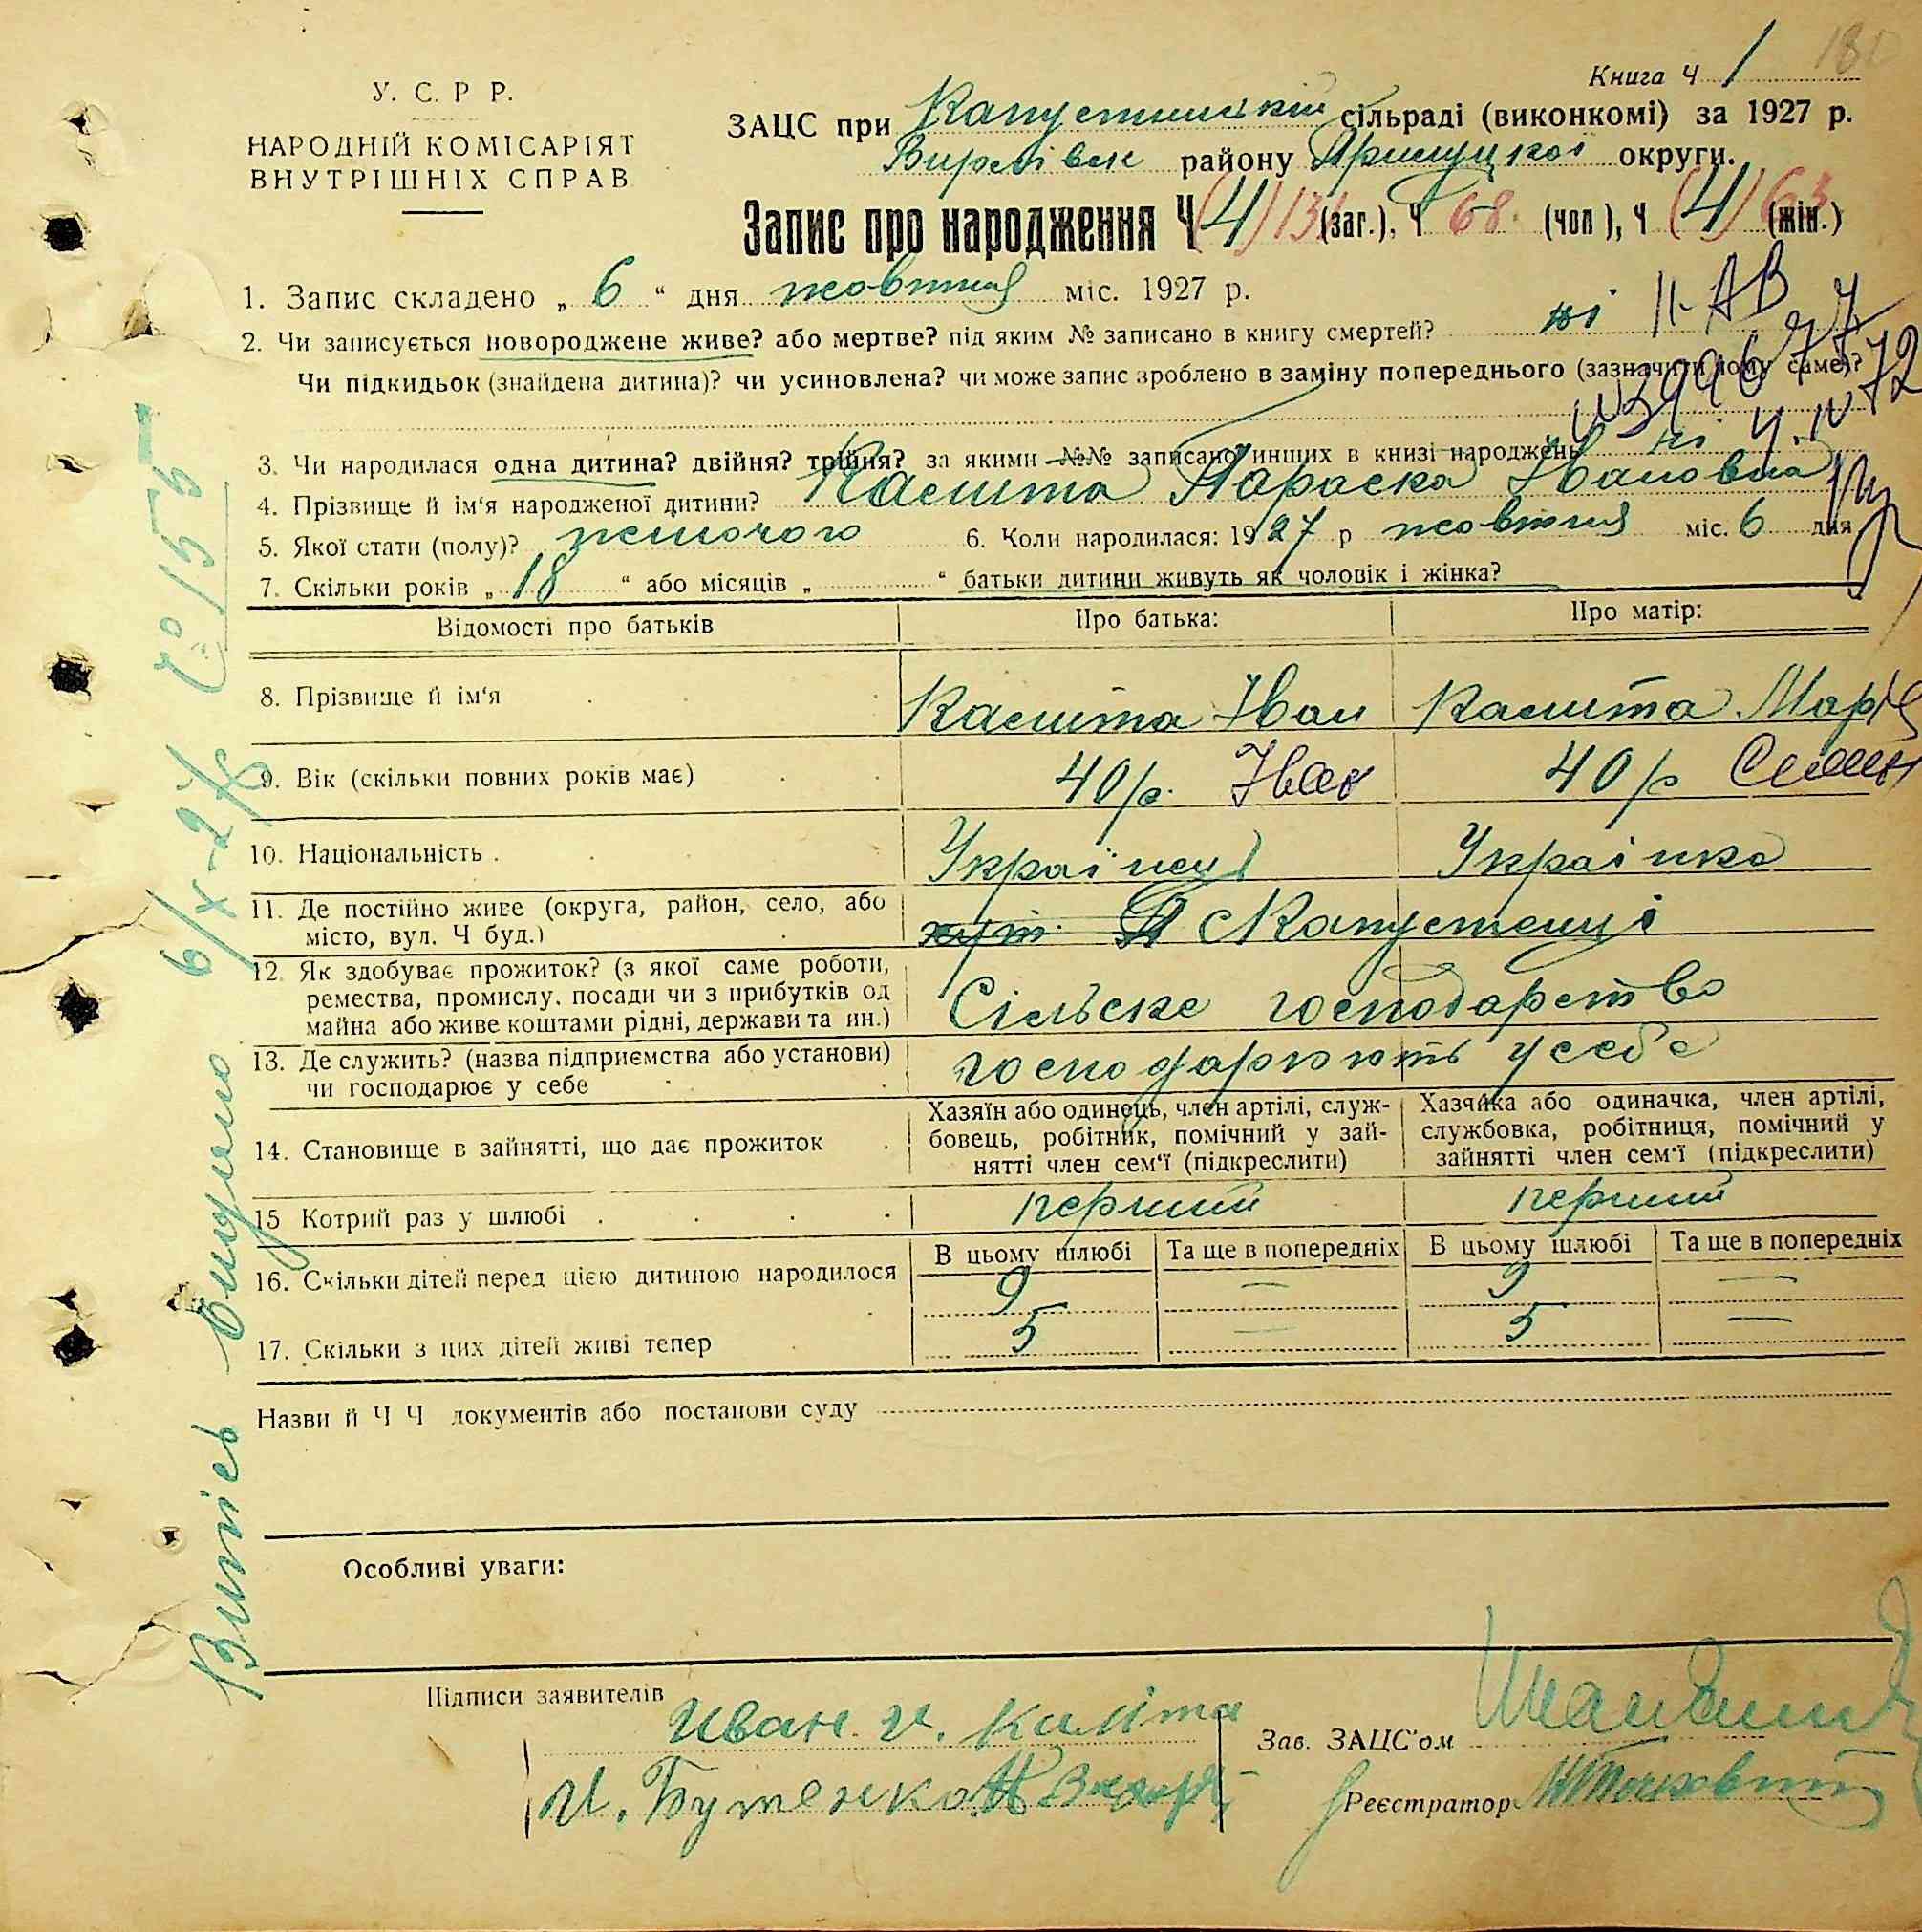 Книга Ч 1
У. С. Р Р.
НАРОДНІЙ КОМІСАРІЯТ
ВНУТРІШНІХ СПРАВ
ЗАЦС при Капустинській сільраді (виконкомі) за 1927 р.
району Прилуцкої округи.
Запис про народження Ч (4) (заг.), Ч 68 (чол), Ч (4) 63 (жін.)
1. Запис складено „ 6 “ дня жовтня міс. 1927 р.
2. Чи записується новороджене живе? або мертве? під яким № записано в книгу смертей? ні
Чи підкидьок (знайдена дитина)? чи усиновлена? чи може запис зроблено в заміну попереднього (зазначити чому саме)?
3. Чи народилася одна дитина? двійня? трійня? за якими №№ записано инших в книзі народжень ні
4. Прізвище й ім‘я народженої дитини? Калита Параска Івановна
5. Якої стати (полу)? жіночого 6. Коли народилася: 1927 р жовтня міс. 6 дня
7. Скільки років „ 18 “ або місяців „ “ батьки дитини живуть як чоловік і жінка?
Відомості про батьків Про батька: Про матір:
8. Прізвище й ім‘я Калита Іван Калита Марія
9. Вік (скільки повних років має) 40 р. Іван 40 р
10. Національність Українец Українка
11. Де постійно живе (округа, район, село, або місто, вул. Ч буд.) с Капустенці
12. Як здобуває прожиток? (з якої саме роботи, ремества, промислу, посади чи з прибутків од майна або живе коштами рідні, держави та ин.) Сільске господарство
13. Де служить? (назва підприємства або установи) чи господарює у себе господарюють у себе
14. Становище в зайнятті, що дає прожиток
Хазяїн або одинець, член артілі, служ-
бовець, робітник, помічний у зай-
нятті член сем‘ї (підкреслити)
Хазяйка або одиначка, член артілі,
службовка, робітниця, помічний у
зайнятті член сем‘ї (підкреслити)
15 Котрий раз у шлюбі перший перший
В цьому шлюбі Та ще в попередніх В цьому шлюбі Та ще в попередніх
16. Скільки дітей перед цією дитиною народилося 9 — 9 —
17. Скільки з цих дітей живі тепер 5 — 5 —
Назви й Ч Ч документів або постанови суду
Особливі уваги:
Підписи заявителів Иван И. Каліта
И. Бутенко
Зав. ЗАЦС‘ом
Реєстратор
Випісь видано 6/X-27 Ч° 155